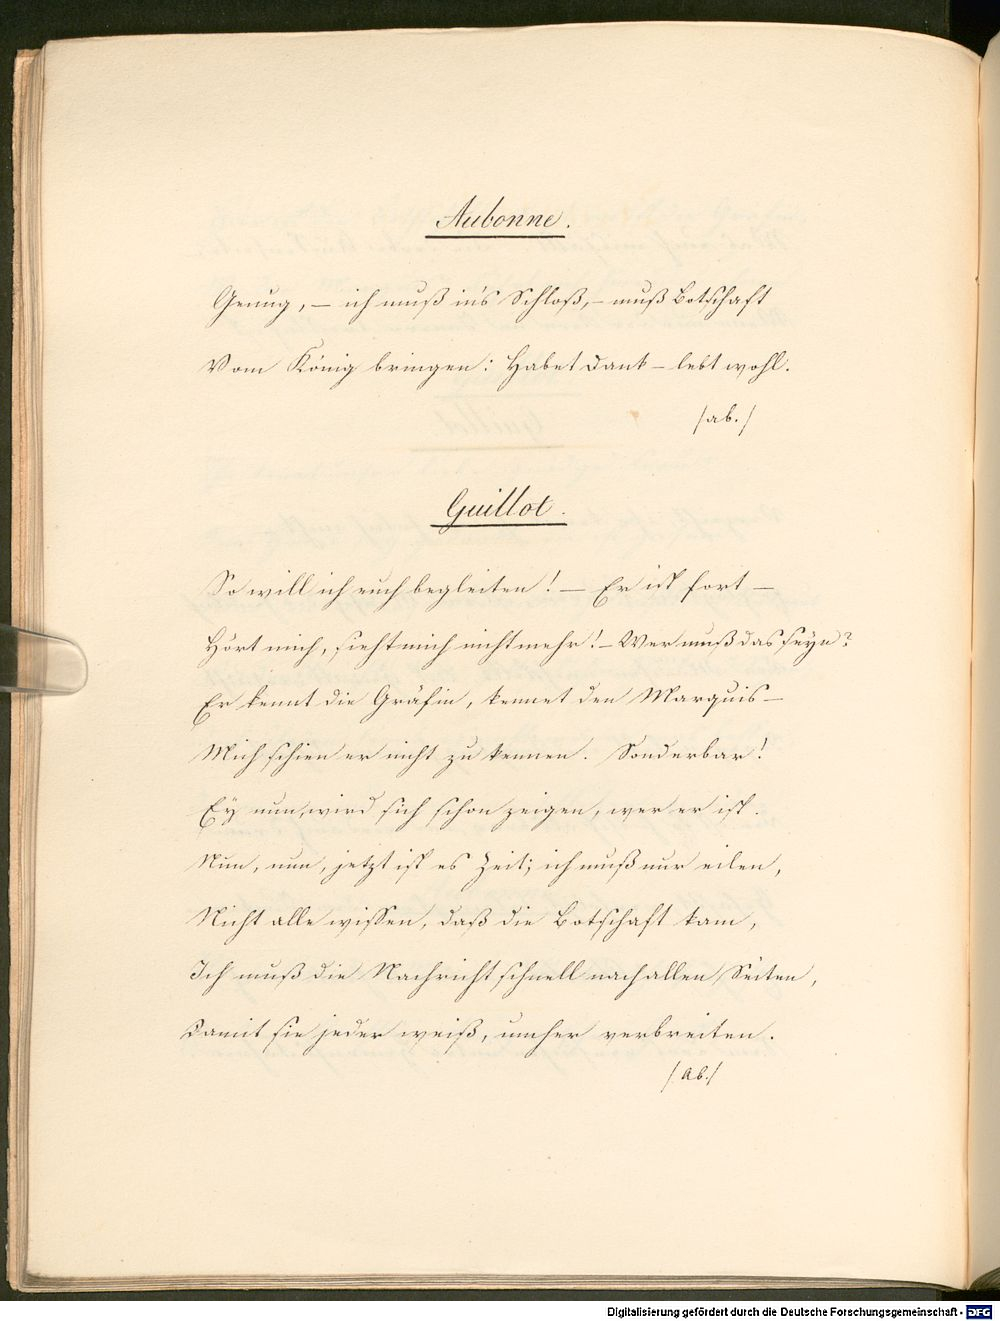 Aubonne.
Genug, – ich muß in's Schloß, – muß Botschaft
Vom König bringen: Habet Dank – lebt wohl.
/ab./
Guillot.
So will ich euch begleiten! – Er ist fort –
Hört mich, sieht mich nicht mehr! – Wer muß das seyn?
Er kennt die Gräfin, kennet den Marquis –
Mich schien er nicht zu kennen. Sonderbar!
Ey nun, wird sich schon zeigen, wer er ist.
Nun, nun, jetzt ist es Zeit; ich muß nur eilen,
Nicht alle wissen, daß die Botschaft kam,
Ich muß die Nachricht schnell nach allen Seiten,
Damit sie jeder weiß, umher verbreiten.
/ab./
Digitalisierung gefördert durch die Deutsche Forschungsgemeinschaft - DFG